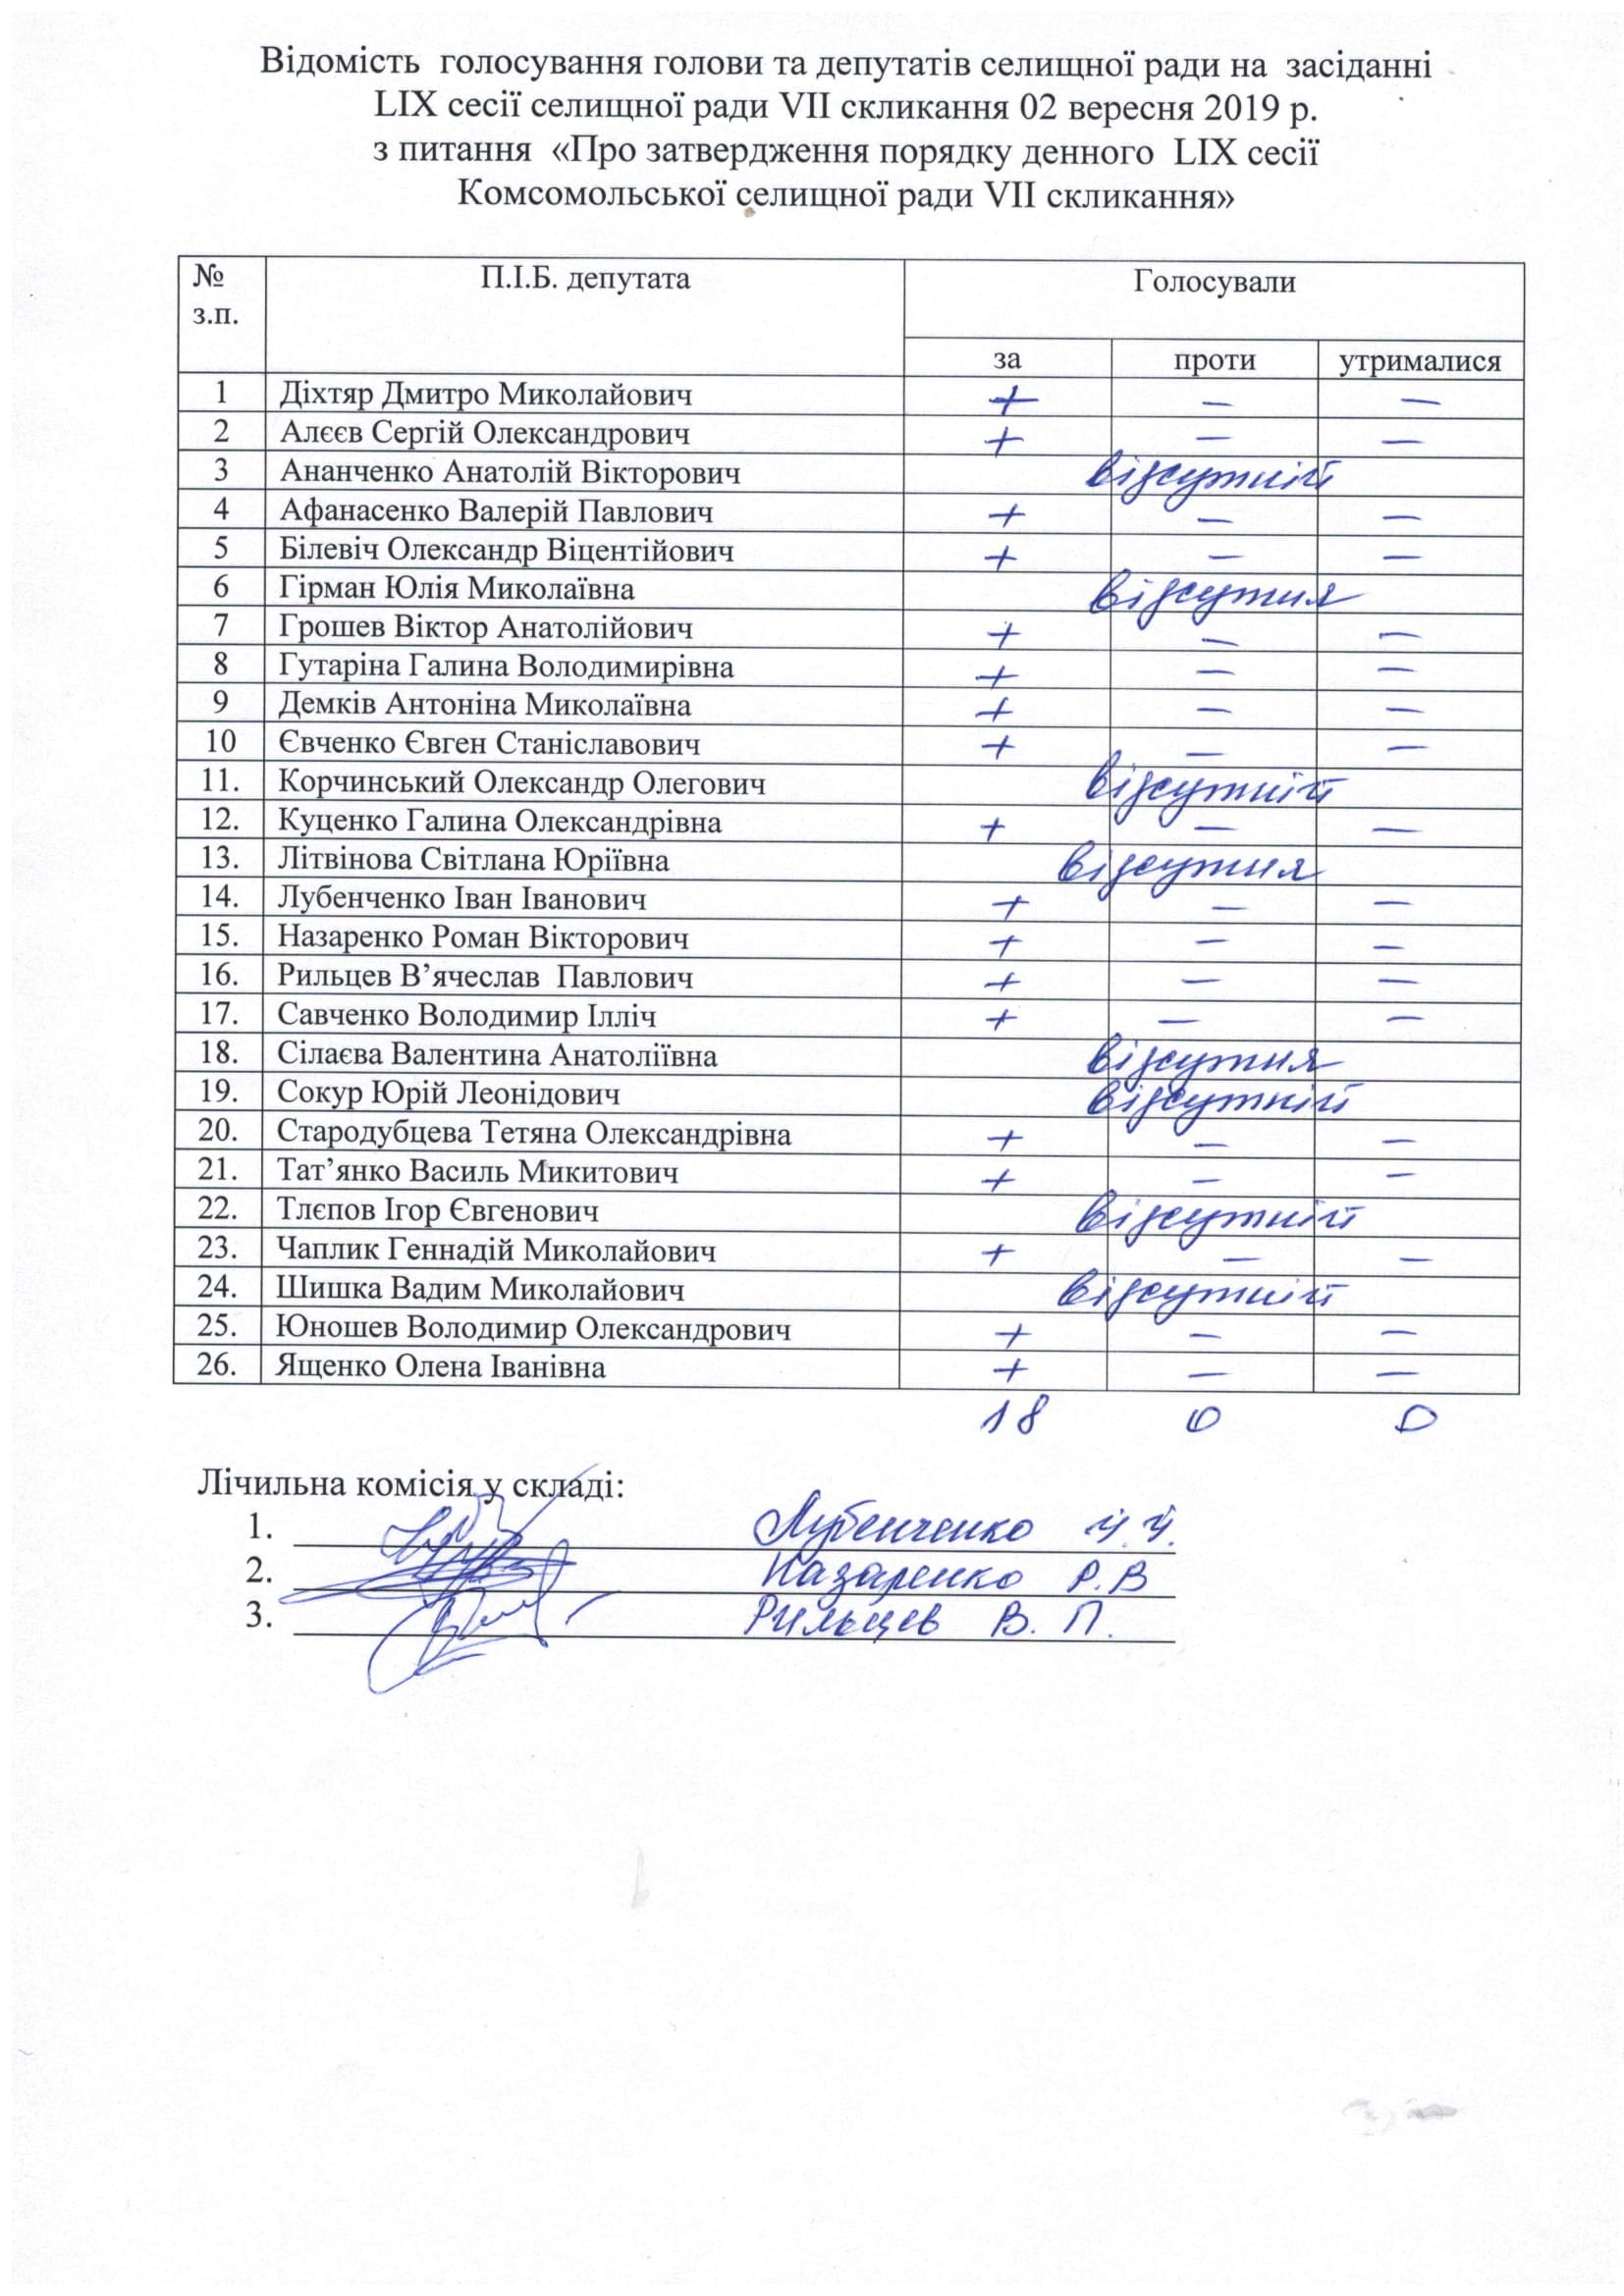 Відомість голосування голови та депутатів селищної ради на засіданні
LIX сесії селищної ради VII скликання 02 вересня 2019 р.
з питання «Про затвердження порядку денного LIX сесії
Комсомольської селищної ради VII скликання»
№ з.п. П.І.Б. депутата Голосували
за проти утрималися
1 Діхтяр Дмитро Миколайович + – –
2 Алєєв Сергій Олександрович + – –
3 Ананченко Анатолій Вікторович відсутній
4 Афанасенко Валерій Павлович + – –
5 Білевіч Олександр Віцентійович + – –
6 Гірман Юлія Миколаївна відсутня
7 Грошев Віктор Анатолійович + – –
8 Гутаріна Галина Володимирівна + – –
9 Демків Антоніна Миколаївна + – –
10 Євченко Євген Станіславович + – –
11. Корчинський Олександр Олегович відсутній
12. Куценко Галина Олександрівна + – –
13. Літвінова Світлана Юріївна відсутня
14. Лубенченко Іван Іванович + – –
15. Назаренко Роман Вікторович + – –
16. Рильцев В’ячеслав Павлович + – –
17. Савченко Володимир Ілліч + – –
18. Сілаєва Валентина Анатоліївна відсутня
19. Сокур Юрій Леонідович відсутній
20. Стародубцева Тетяна Олександрівна + – –
21. Тат’янко Василь Микитович + – –
22. Тлєпов Ігор Євгенович відсутній
23. Чаплик Геннадій Миколайович + – –
24. Шишка Вадим Миколайович відсутній
25. Юношев Володимир Олександрович + – –
26. Ященко Олена Іванівна + – –
18 0 0
Лічильна комісія у складі:
1. Лубенченко И.И.
2. Назаренко Р.В
3. Рильцев В. П.